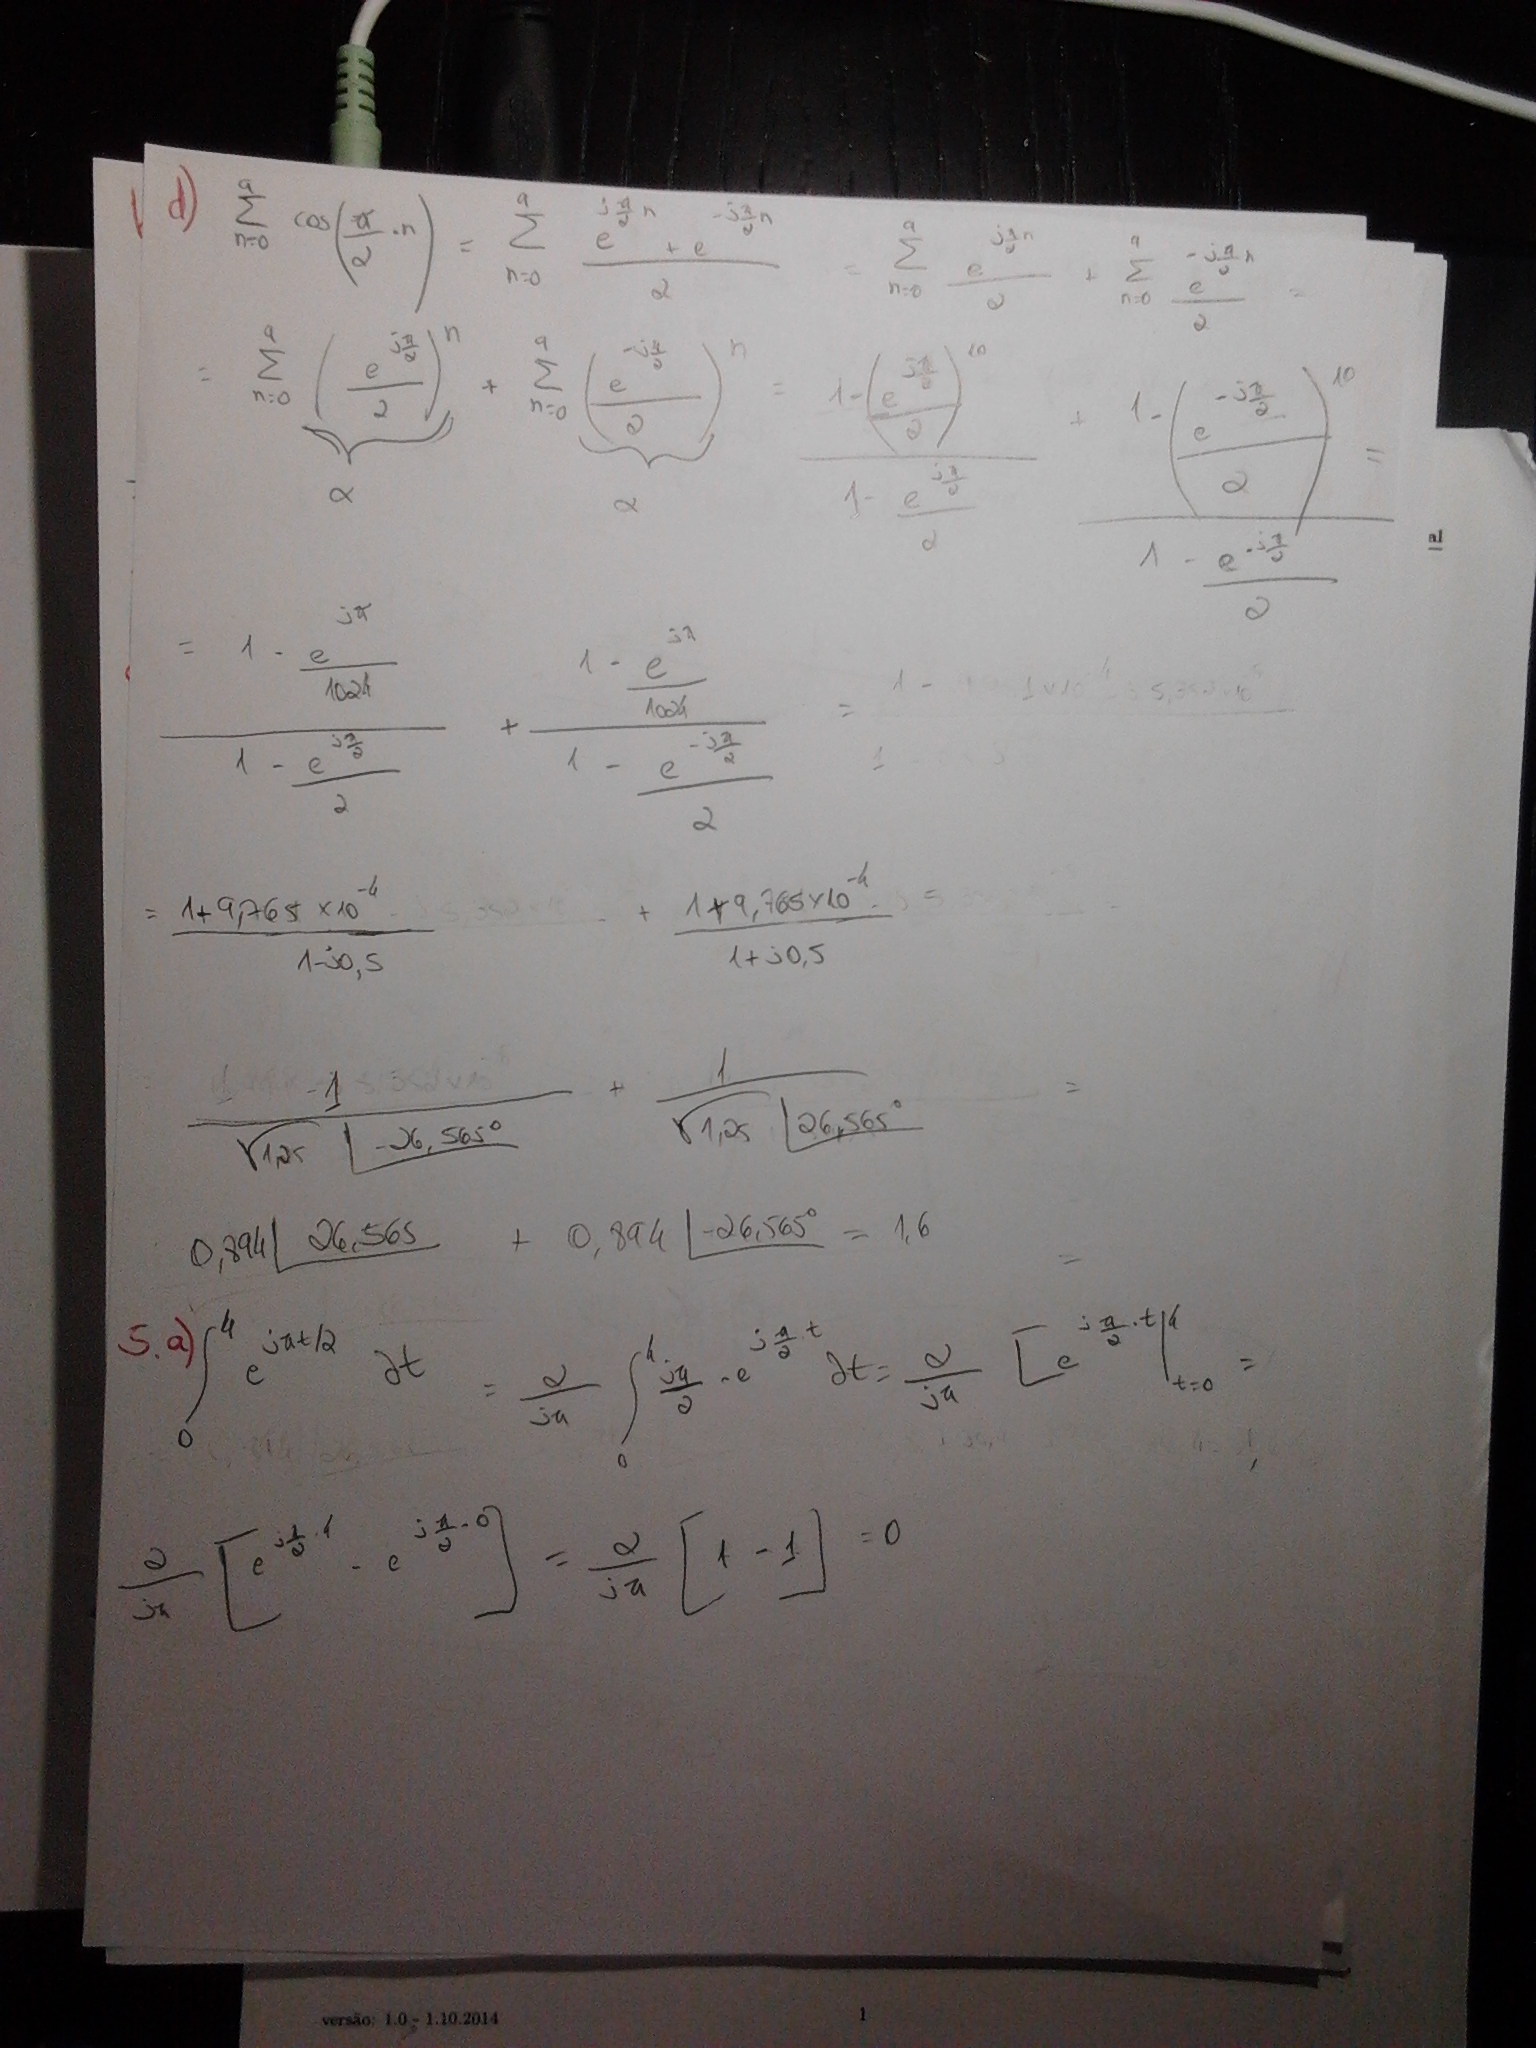 d) \sum_{n=0}^{9} cos(\frac{π}{2}·n) = \sum_{n=0}^{9} \frac{e^{j\frac{π}{2}n} + e^{-j\frac{π}{2}n}}{2} = \sum_{n=0}^{9} \frac{e^{j\frac{π}{2}n}}{2} + \sum_{n=0}^{9} \frac{e^{-j\frac{π}{2}n}}{2} =
= \sum_{n=0}^{9} (\frac{e^{j\frac{π}{2}}}{2})^n + \sum_{n=0}^{9} (\frac{e^{-j\frac{π}{2}}}{2})^n = \frac{1-(\frac{e^{j\frac{π}{2}}}{2})^{10}}{1-\frac{e^{j\frac{π}{2}}}{2}} + \frac{1-(\frac{e^{-j\frac{π}{2}}}{2})^{10}}{1-\frac{e^{-j\frac{π}{2}}}{2}} =
α α
= \frac{1-\frac{e^{jπ}}{1024}}{1-\frac{e^{j\frac{π}{2}}}{2}} + \frac{1-\frac{e^{jπ}}{1024}}{1-\frac{e^{-j\frac{π}{2}}}{2}} =
= \frac{1+9,765×10^{-4}}{1-j0,5} + \frac{1+9,765×10^{-4}}{1+j0,5} =
\frac{1}{\sqrt{1,25} ∠-26,565°} + \frac{1}{\sqrt{1,25} ∠26,565°} =
0,894∠26,565 + 0,894∠-26,565° = 1,6 =
5. a) \int_0^4 e^{jπt/2} ∂t = \frac{2}{jπ} \int_0^4 \frac{jπ}{2}·e^{j\frac{π}{2}·t} ∂t = \frac{2}{jπ} [e^{j\frac{π}{2}·t}|_{t=0}^{4} =
\frac{2}{jπ} [e^{j\frac{π}{2}·4} - e^{j\frac{π}{2}·0}] = \frac{2}{jπ} [1 - 1] = 0
versão: 1.0 - 1.10.2014 1